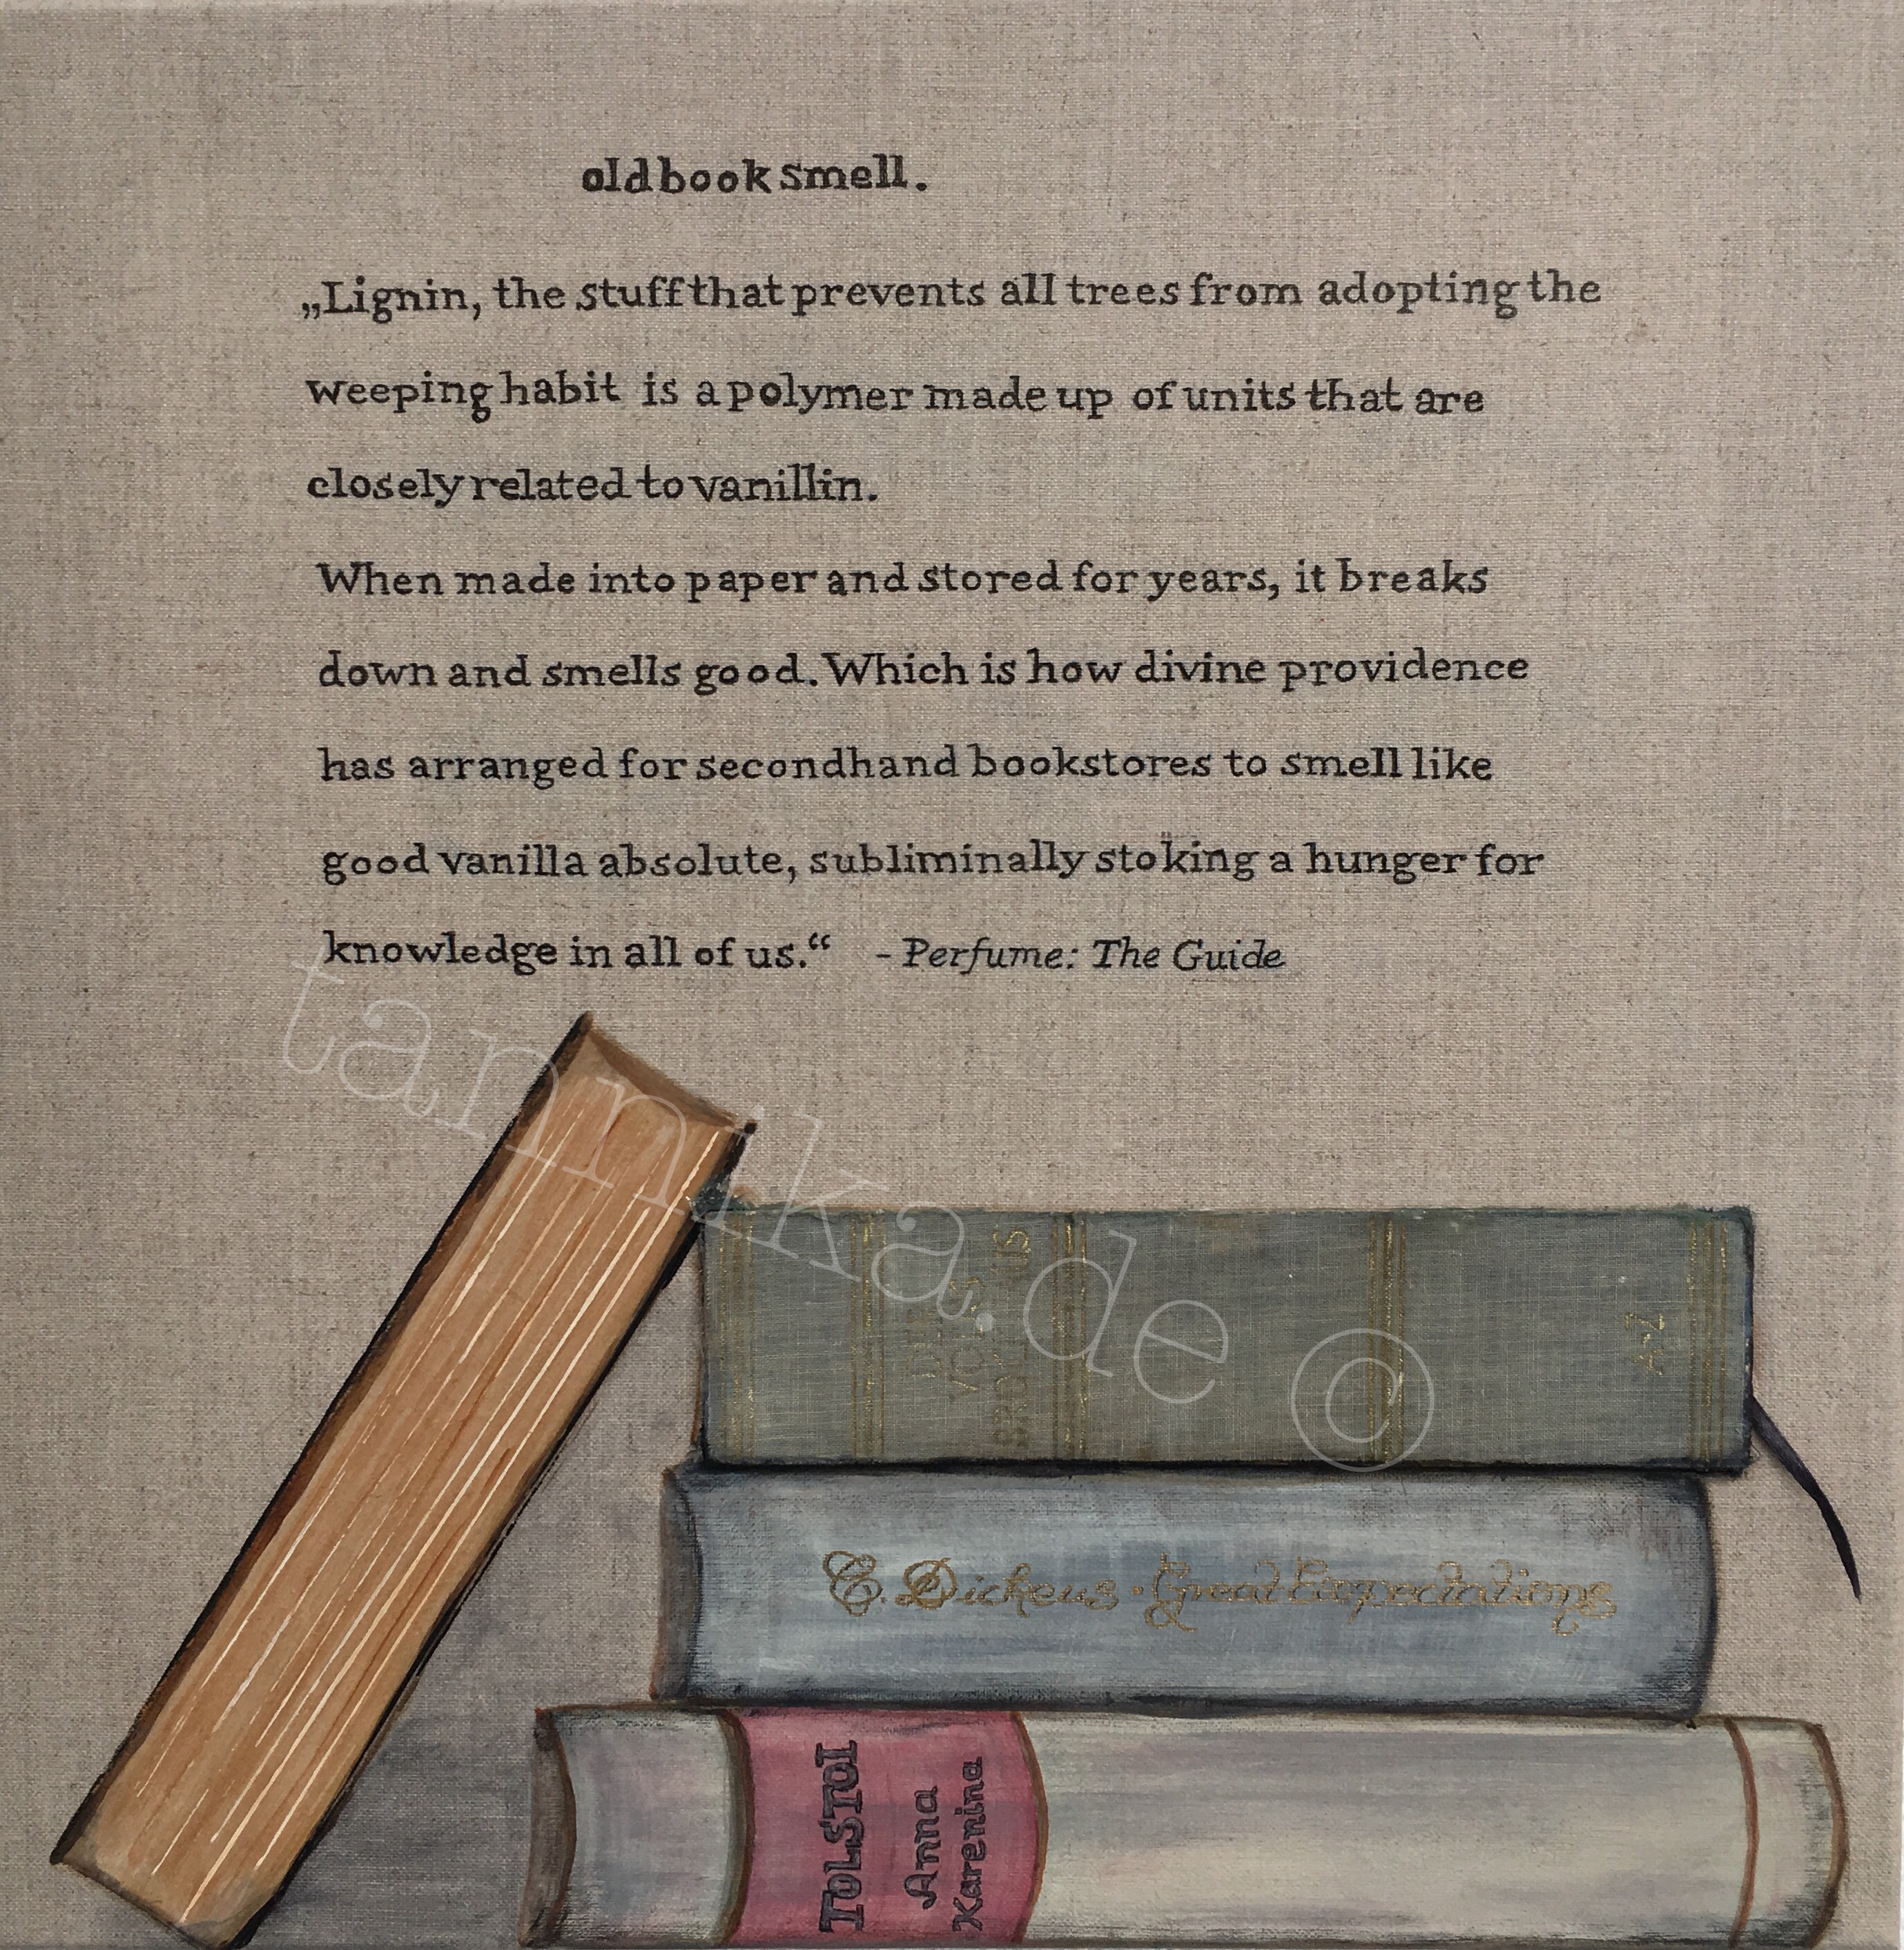 old book smell.
„Lignin, the stuff that prevents all trees from adopting the
weeping habit is a polymer made up of units that are
closely related to vanillin.
When made into paper and stored for years, it breaks
down and smells good. Which is how divine providence
has arranged for secondhand bookstores to smell like
good vanilla absolute, subliminally stoking a hunger for
knowledge in all of us.“ - Perfume: The Guide
tannika.de ©
A-Z
C. Dickens · Great Expectations
TOLSTOI
Anna
Karenina